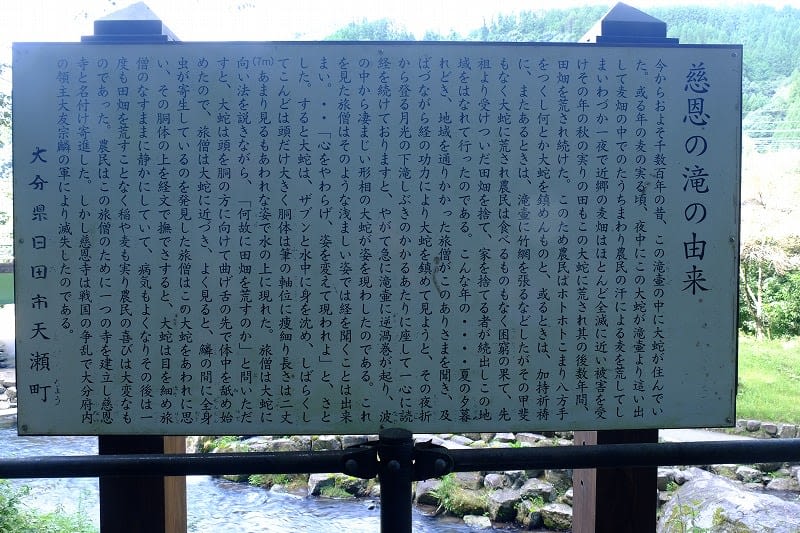 慈恩の滝の由来
今からおよそ千数百年の昔、この滝壷の中に大蛇が住んでい
た。或る年の麦の実る頃、夜中にこの大蛇が滝壷より這い出
して麦畑の中でのたうちまわり農民の汗による麦を荒してし
まいわづか一夜で近郷の麦畑はほとんど全滅に近い被害を受
けその年の秋の実りの田もこの大蛇に荒され其の後数年間、
田畑を荒され続けた。このため農民はホトホトこまり八方手
をつくし何とか大蛇を鎮めんものと、或るときは、加持祈祷
に、またあるときは、滝壷に竹網を張るなどしたがその甲斐
もなく大蛇に荒され農民は食べるものもなく困窮の果て、先
祖より受けついだ田畑を捨て、家を捨てる者が続出しこの地
域をはなれて行ったのである。こんな年の・・・・夏の夕暮
れどき、地域を通りかかった旅僧がこのありさまを聞き、及
ばづながら経の功力により大蛇を鎮めて見ようと、その夜折
から登る月光の下滝しぶきのかかるあたりに座して一心に読
経を続けておりますと、やがて急に滝壷に逆渦巻が起り、波
の中から凄まじい形相の大蛇が姿を現わしたのである。これ
を見た旅僧はそのような浅ましい姿では経を聞くことは出来
まい。・・「心をやわらげ、姿を変えて現われよ」と、さと
した。すると大蛇は、ザブンと水中に身を沈め、しばらくし
てこんどは頭だけ大きく胴体は筆の軸位に痩細り長さは二丈
(7m)あまり見るもあわれな姿で水の上に現れた。旅僧は大蛇に
向い法を説きながら、「何故に田畑を荒すのか」と問いただ
すと、大蛇は頭を胴の方に向けて曲げ舌の先で体中を舐め始
めたので、旅僧は大蛇に近づき、よく見ると、鱗の間に全身
虫が寄生しているのを発見した旅僧はこの大蛇をあわれに思
い、その胴体の上を経文で撫でさすると、大蛇は目を細め旅
僧のなすままに静かにしていて、病気もよくなりその後は一
度も田畑を荒すことなく稲や麦も実り農民の喜びは大変なも
のであった。農民はこの旅僧のために一つの寺を建立し慈恩
寺と名付け寄進した。しかし慈恩寺は戦国の争乱で大分府内
の領主大友宗麟の軍により滅失したのである。
大分県日田市天瀬町